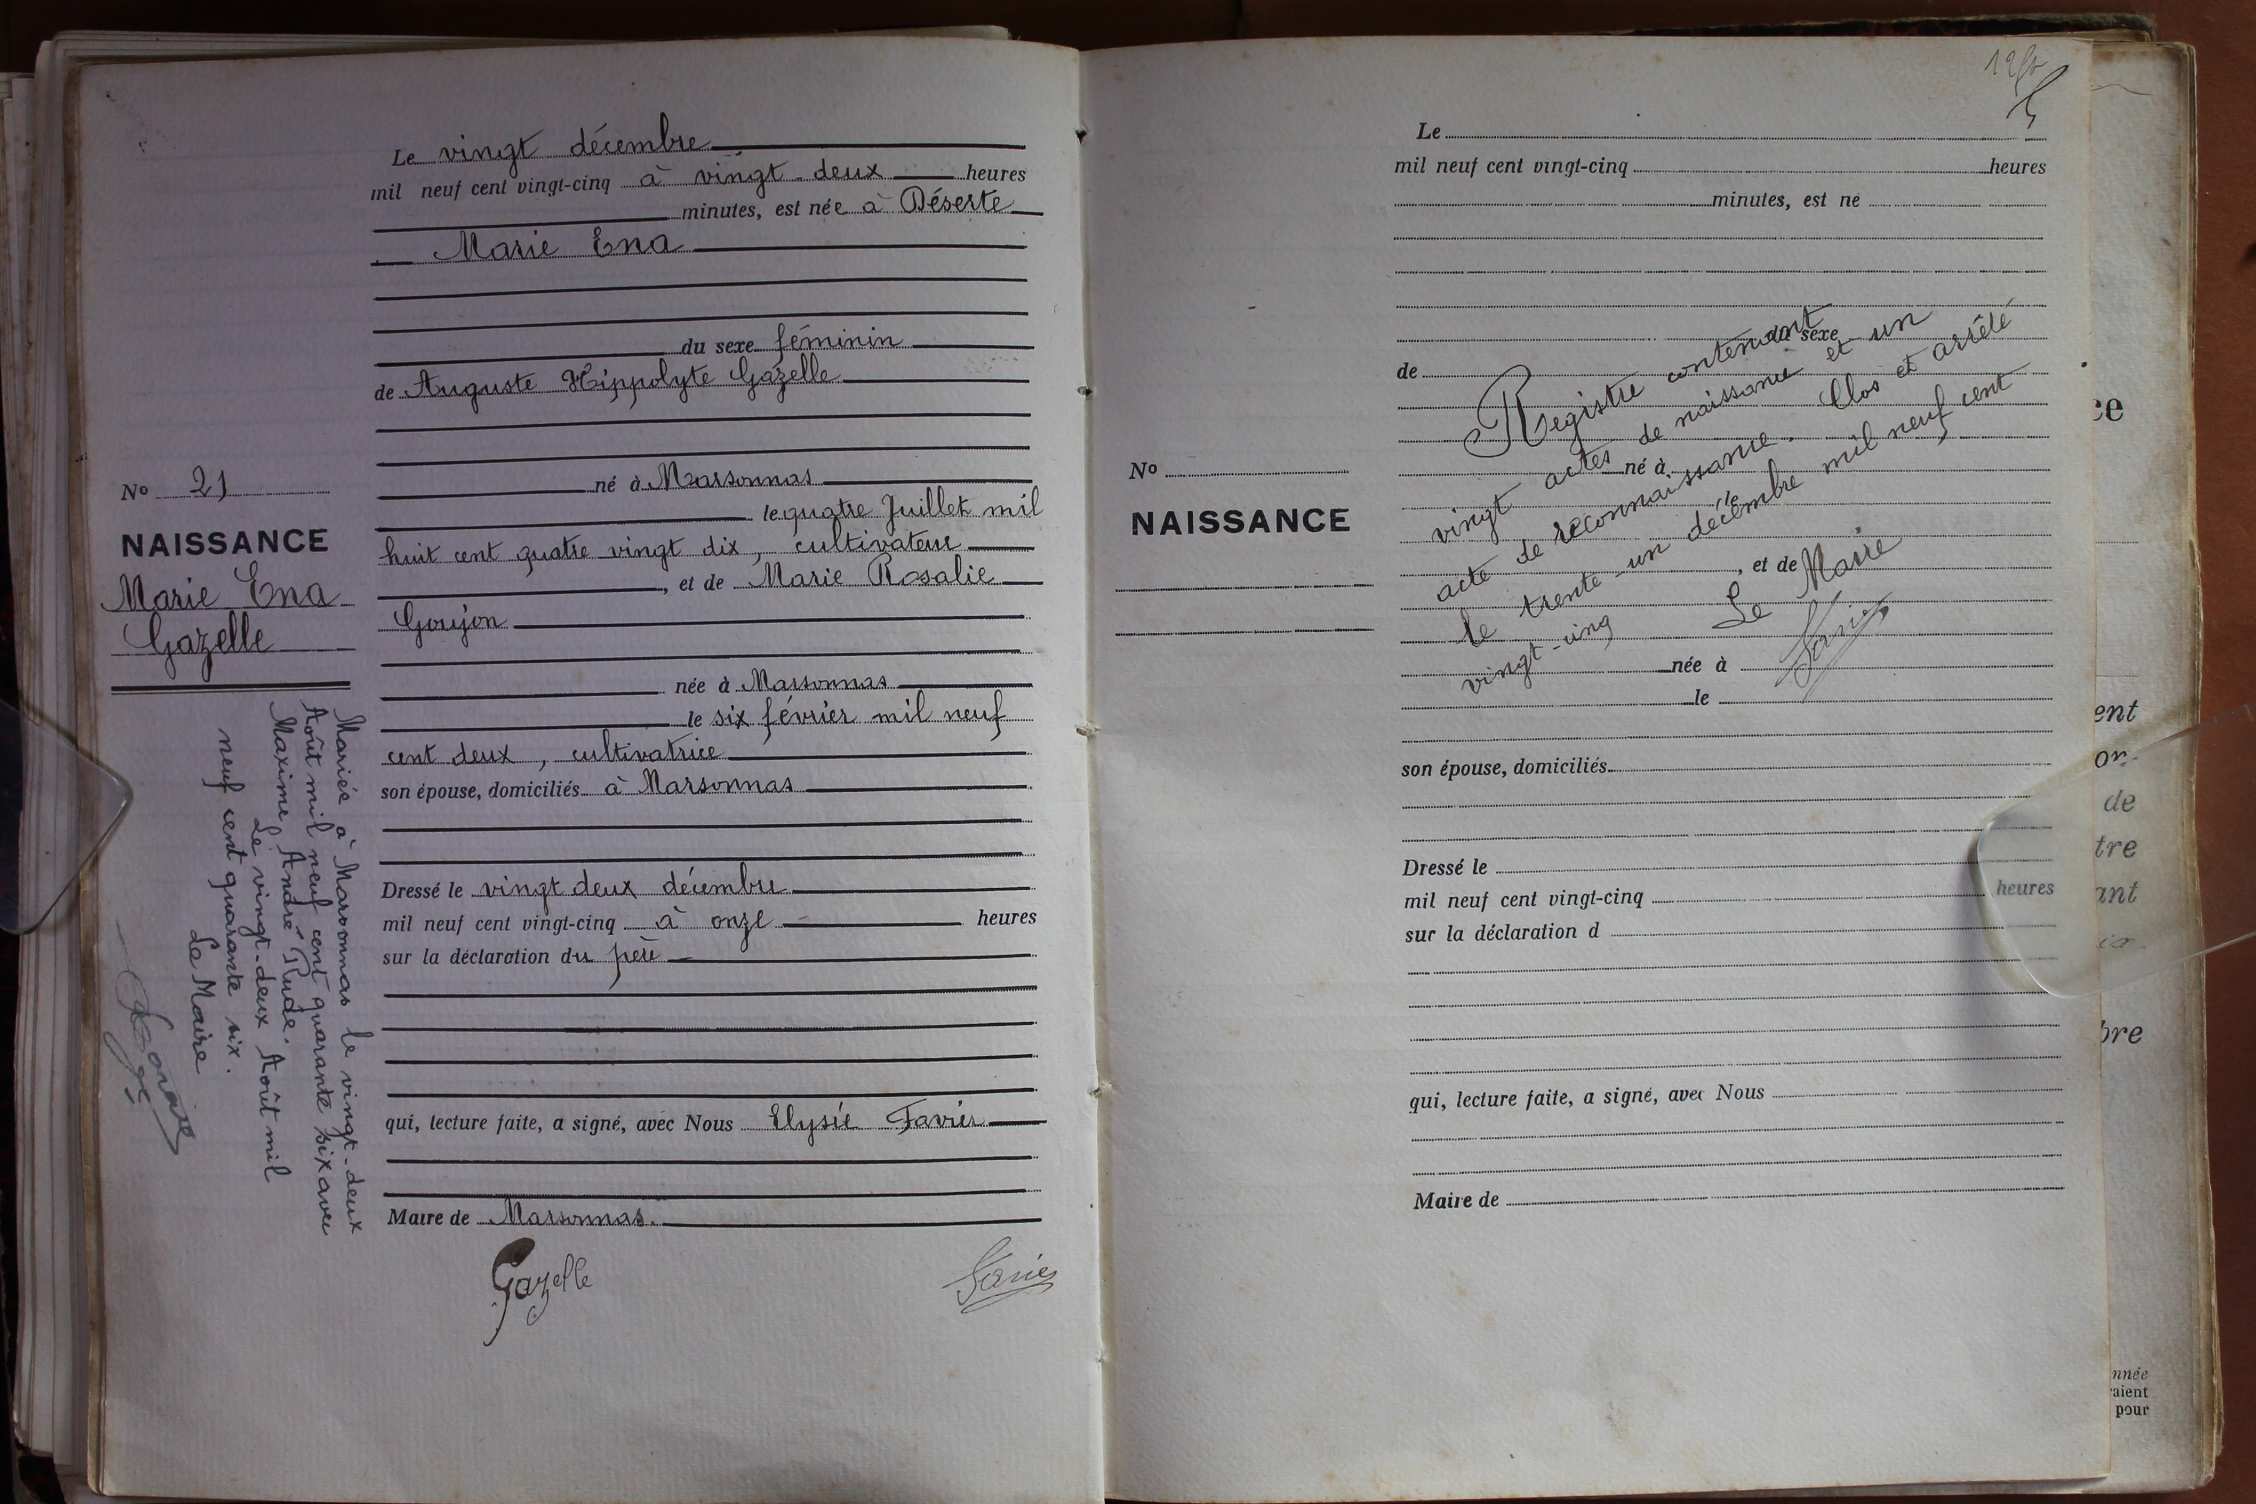 Le vingt décembre
mil neuf cent vingt-cinq à vingt-deux heures
minutes, est née à Déserte
Marie Ena
du sexe féminin
de Auguste Hippolyte Gazelle
né à Marsonnas
le quatre Juillet mil
huit cent quatre vingt dix, cultivateur
, et de Marie Rosalie
Goujon
née à Marsonnas
le six février mil neuf
cent deux, cultivatrice
son épouse, domiciliés à Marsonnas
Dressé le vingt deux décembre
mil neuf cent vingt-cinq à onze heures
sur la déclaration du père
qui, lecture faite, a signé, avec Nous Elysée Favier
Maire de Marsonnas.
Gazelle
Favier
No 21
NAISSANCE
Marie Ena
Gazelle
Mariée à Marsonnas le vingt-deux
Août mil neuf cent quarante six avec
Maxime, André Pudé.
Le vingt-deux Août mil
neuf cent quarante six.
Le Maire
Le
mil neuf cent vingt-cinq heures
minutes, est né
du sexe
de
né à
le
, et de
née à
le
son épouse, domiciliés
Dressé le
mil neuf cent vingt-cinq heures
sur la déclaration d
qui, lecture faite, a signé, avec Nous
Maire de
No
NAISSANCE
Registre contenant
vingt actes de naissance et un
acte de reconnaissance. Clos et arrêté
le trente-un décembre mil neuf cent
vingt-cinq
Le Maire
Favier
ce
ent
or-
de
tre
ant
bre
nnée
raient
pour